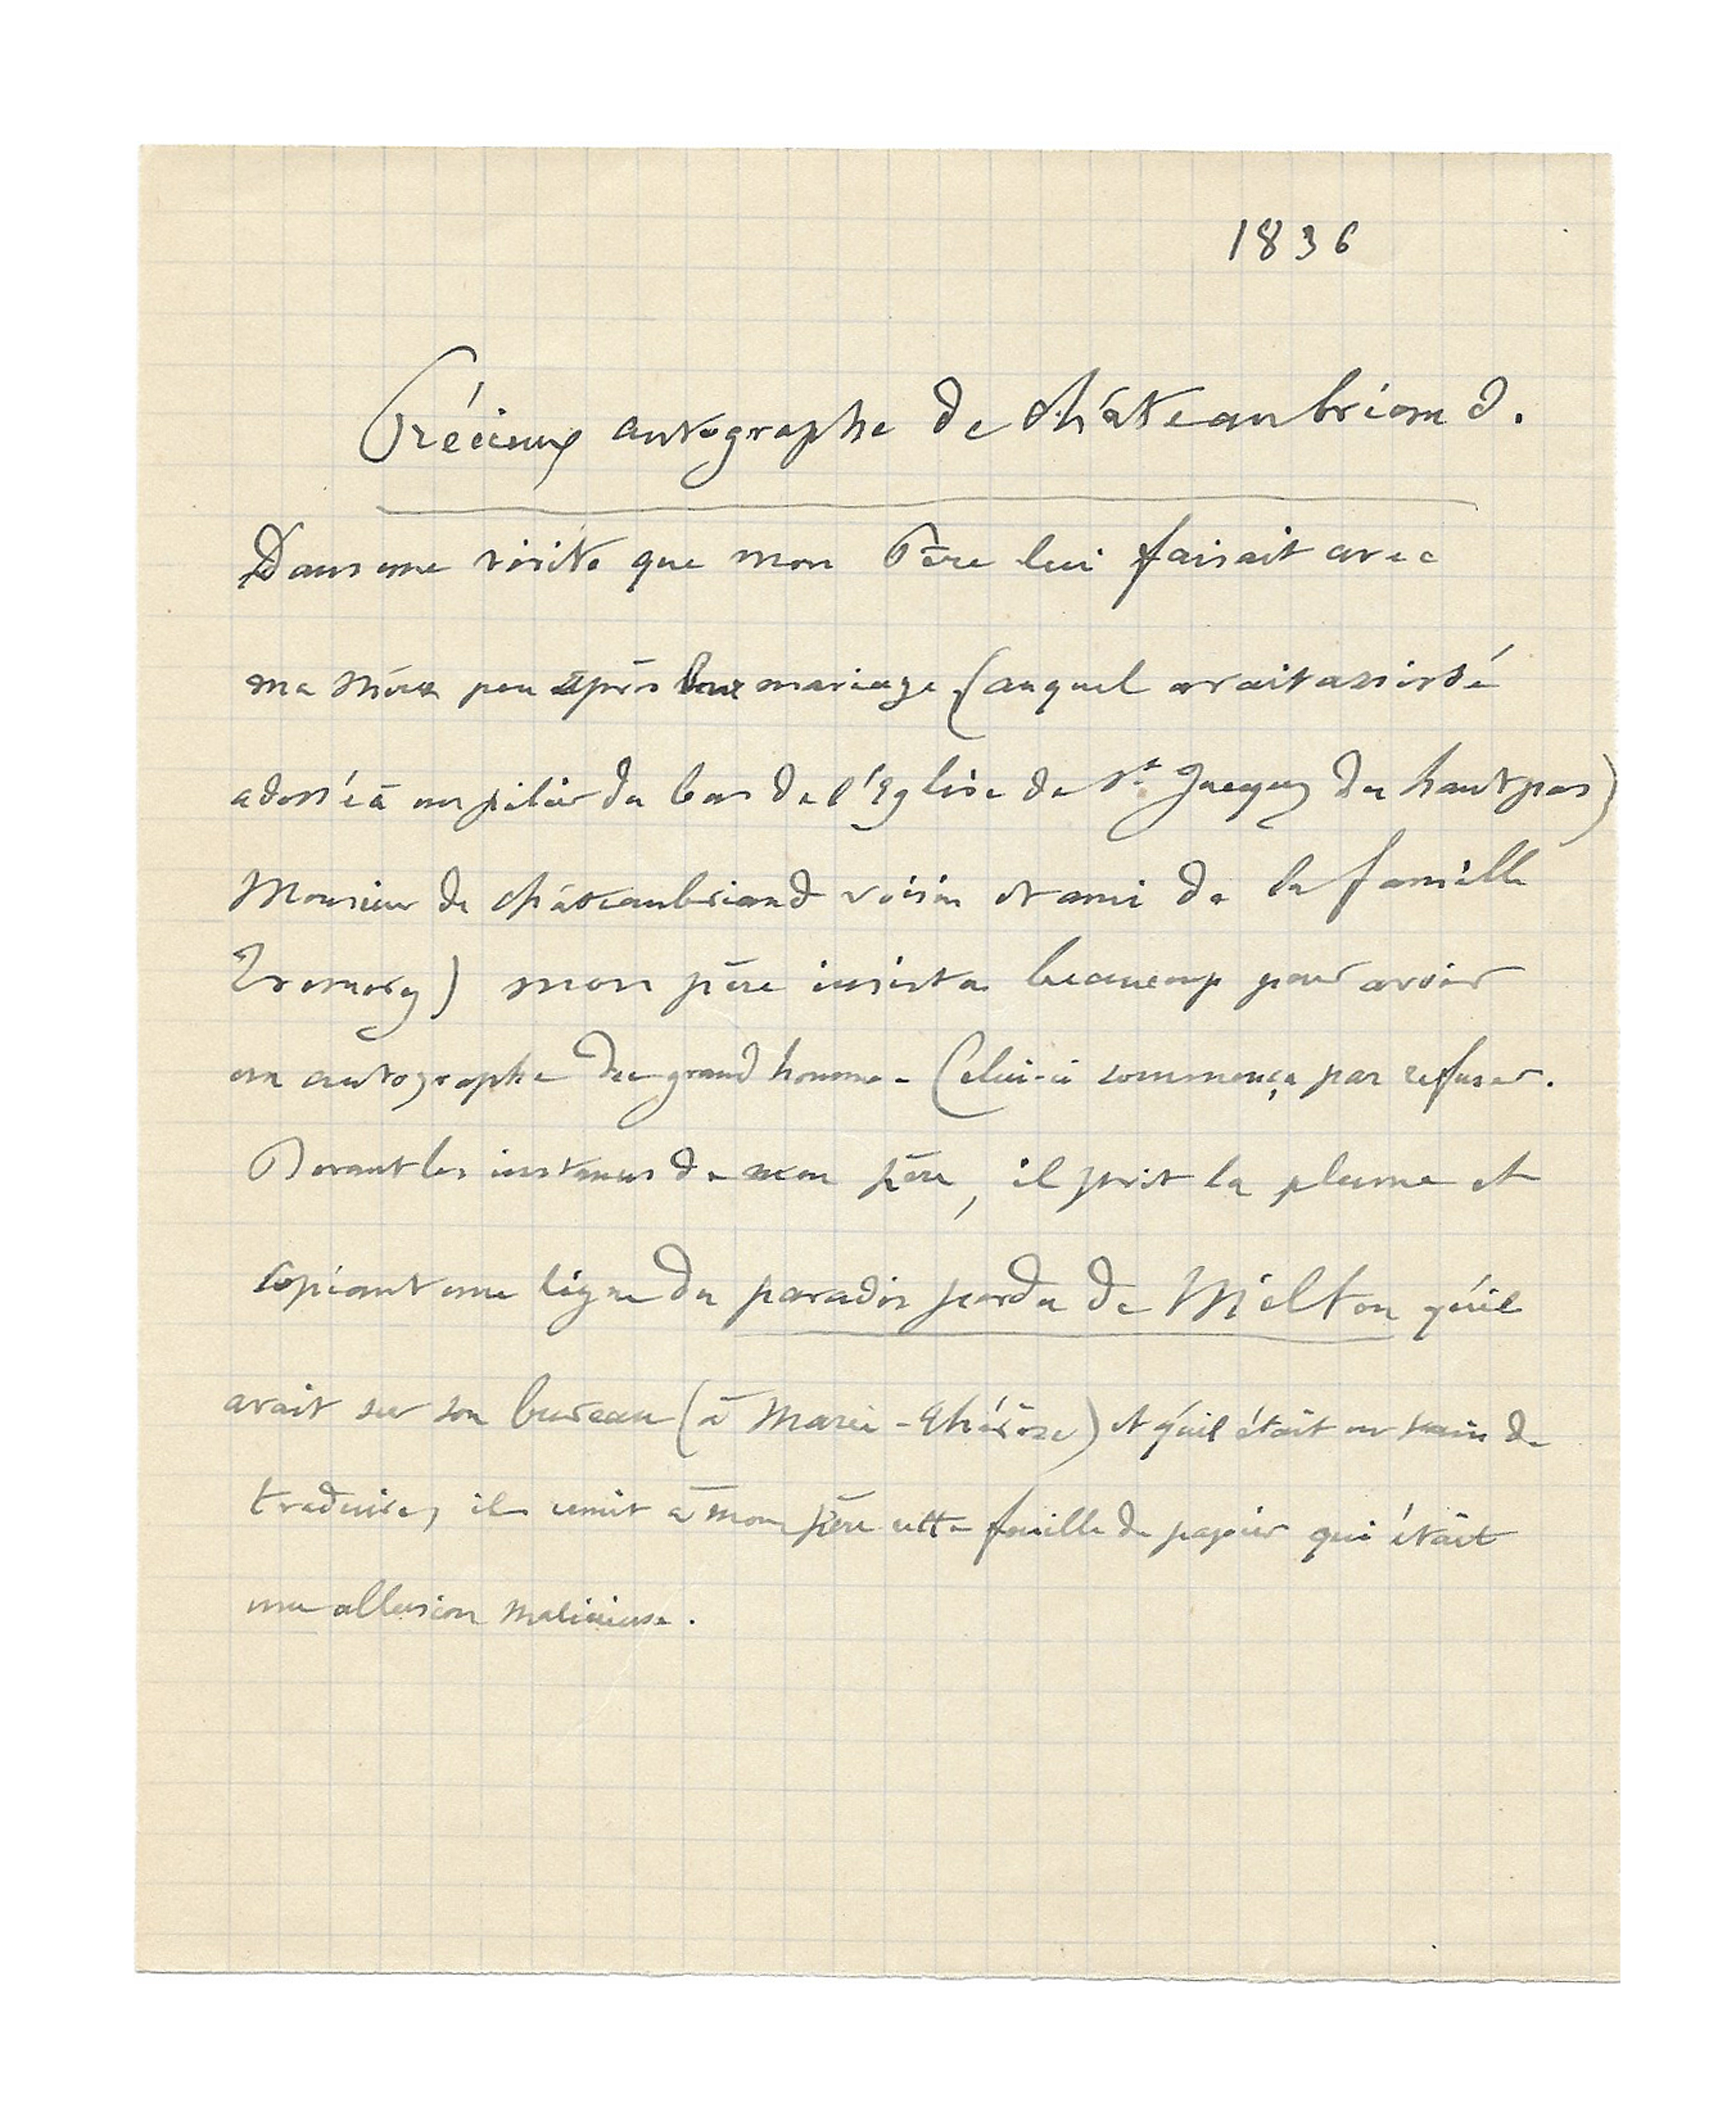 1836
Précieux autographe de châteaubriand.
Dans une visite que mon Père lui faisait avec
ma Mère peu après leur mariage (auquel avait assisté
adossé à un pilier du bas de l'Eglise de St Jacques du haut pas)
Monsieur de châteaubriand voisin et ami de la famille
mon père insista beaucoup pour avoir
un autographe du grand homme - Celui-ci commença par refuser.
Devant les instances de mon père, il prit la plume et
copiant une ligne du paradis perdu de Milton qu'il
avait sur son bureau (à Marie-Thérèse) et qu'il était en train de
traduire, il remit à mon père cette feuille de papier qui était
une allusion malicieuse.